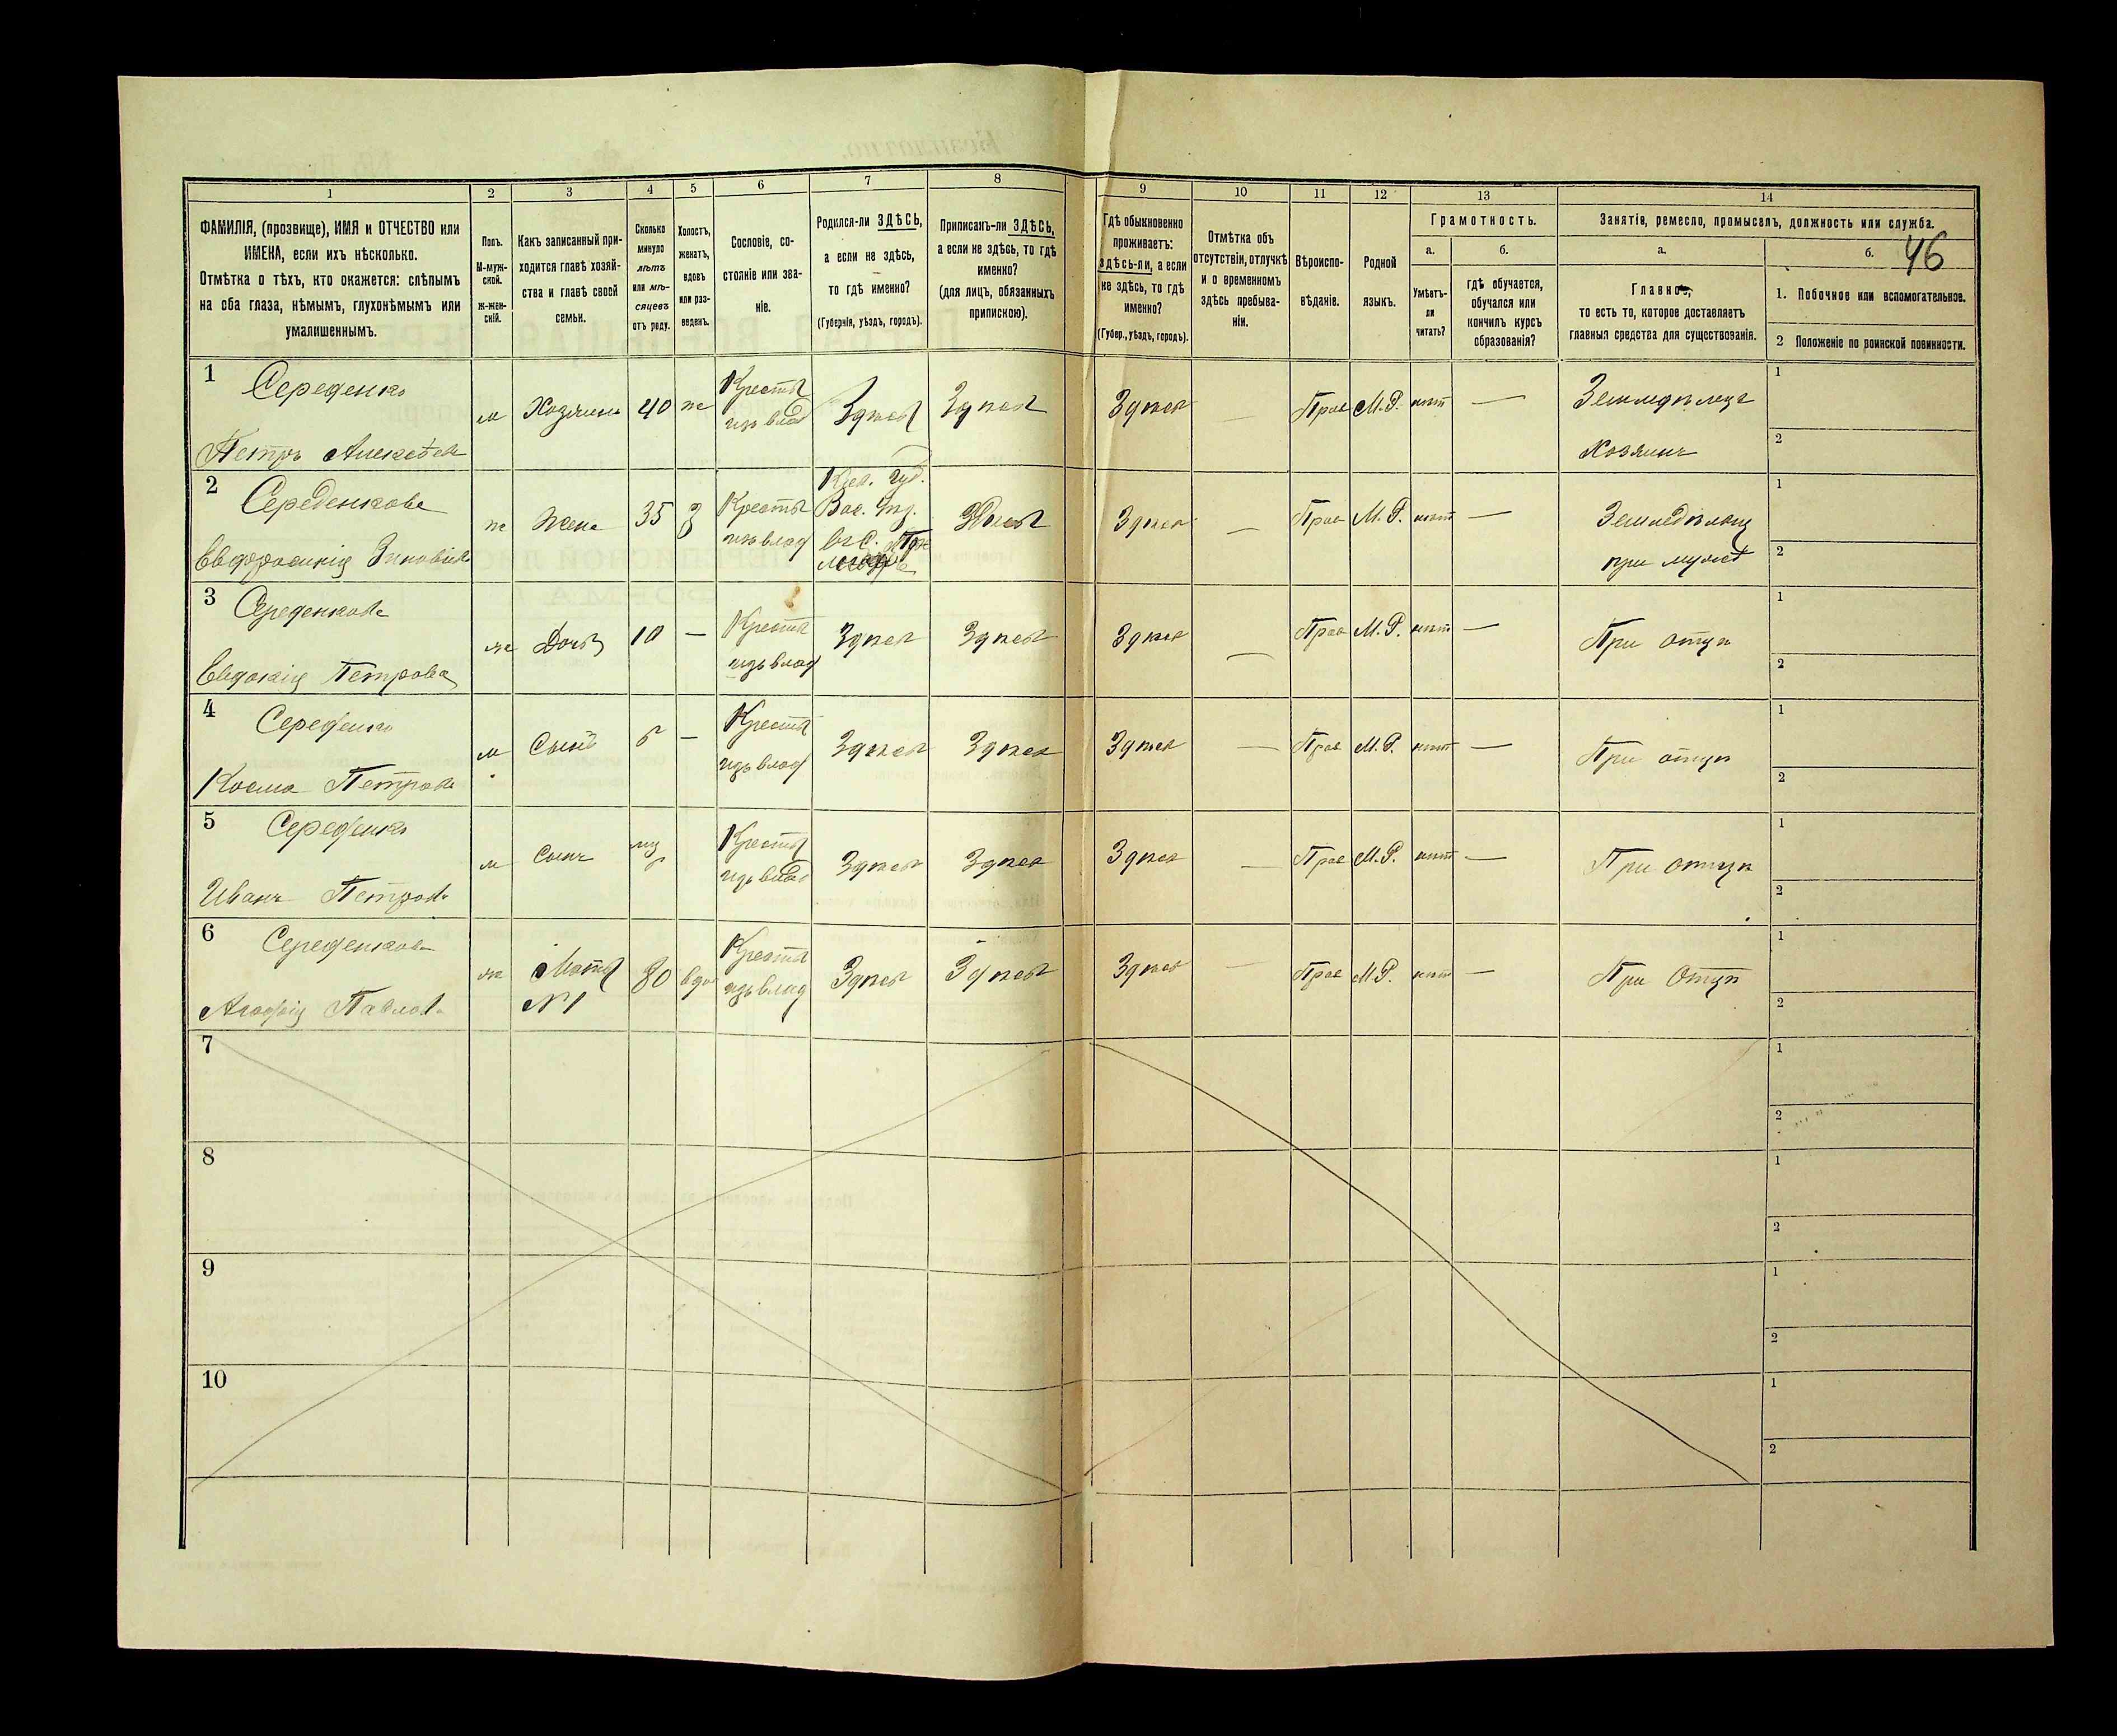 1 2 3 4 5 6 7 8 9 10 11 12 13 14
ФАМИЛІЯ, (прозвище), ИМЯ и ОТЧЕСТВО или
ИМЕНА, если ихъ нѣсколько.
Отмѣтка о тѣхъ, кто окажется: слѣпымъ
на оба глаза, нѣмымъ, глухонѣмымъ или
умалишеннымъ.
Полъ.
М-муж-
ской.
ж-жен-
скій.
Какъ записанный при-
ходится главѣ хозяй-
ства и главѣ своей
семьи.
Сколько
минуло
лѣтъ
или мѣ-
сяцевъ
отъ роду.
Холостъ,
женатъ,
вдовъ
или раз-
веденъ.
Сословіе, со-
стояніе или зва-
ніе.
Родился-ли ЗДѢСЬ,
а если не здѣсь,
то гдѣ именно?
(Губернія, уѣздъ, городъ).
Приписанъ-ли ЗДѢСЬ,
а если не здѣсь, то гдѣ
именно?
(для лицъ, обязанныхъ
припискою).
Гдѣ обыкновенно
проживаетъ:
здѣсь-ли, а если
не здѣсь, то гдѣ
именно?
(Губер., уѣздъ, городъ).
Отмѣтка объ
отсутствіи, отлучкѣ
и о временномъ
здѣсь пребыва-
ніи.
Вѣроиспо-
вѣданіе.
Родной
языкъ.
Грамотность.
а.
Умѣетъ-
ли
читать?
б.
гдѣ обучается,
обучался или
кончилъ курсъ
образованія?
Занятія, ремесло, промыселъ, должность или служба.
а.
Главное,
то есть то, которое доставляетъ
главныя средства для существованія.
б. 46
1. Побочное или вспомогательное.
2 Положеніе по воинской повинности.
1 Середенко
Петръ Алексѣев
м Хозяинъ 40 ж
Кресть
изъ влад
Здѣсь Здѣсь Здѣсь — Прав М.Р. нѣт —
Земледѣлецъ
Хозяинъ
1
2
2 Середенкова
Евфросинія Зиновіев
ж Жена 35 З
Кресть
изъ влад
Кіев. губ.
Вас. уѣз.
въ с.
Здѣсь Здѣсь — Прав М.Р. нѣт —
Земледѣлец
при мужѣ
1
2
3 Середенкова
Евдокія Петрова
ж Дочь 10 —
Кресть
изъ влад
Здѣсь Здѣсь Здѣсь — Прав М.Р. нѣт —
При отцѣ
1
2
4 Середенко
Косма Петров
м Сынъ 5 —
Кресть
изъ влад
Здѣсь Здѣсь Здѣсь — Прав М.Р. нѣт —
При отцѣ
1
2
5 Середенко
Иванъ Петров
м Сынъ
Кресть
изъ влад
Здѣсь Здѣсь Здѣсь — Прав М.Р. нѣт —
При отцѣ
1
2
6 Середенков
Агафія Павлов
ж Мать
№1
80 вдов
Кресть
изъ влад
Здѣсь Здѣсь Здѣсь — Прав М.Р. нѣт —
При Отцѣ
1
2
7
1
2
8
1
2
9
1
2
10
1
2